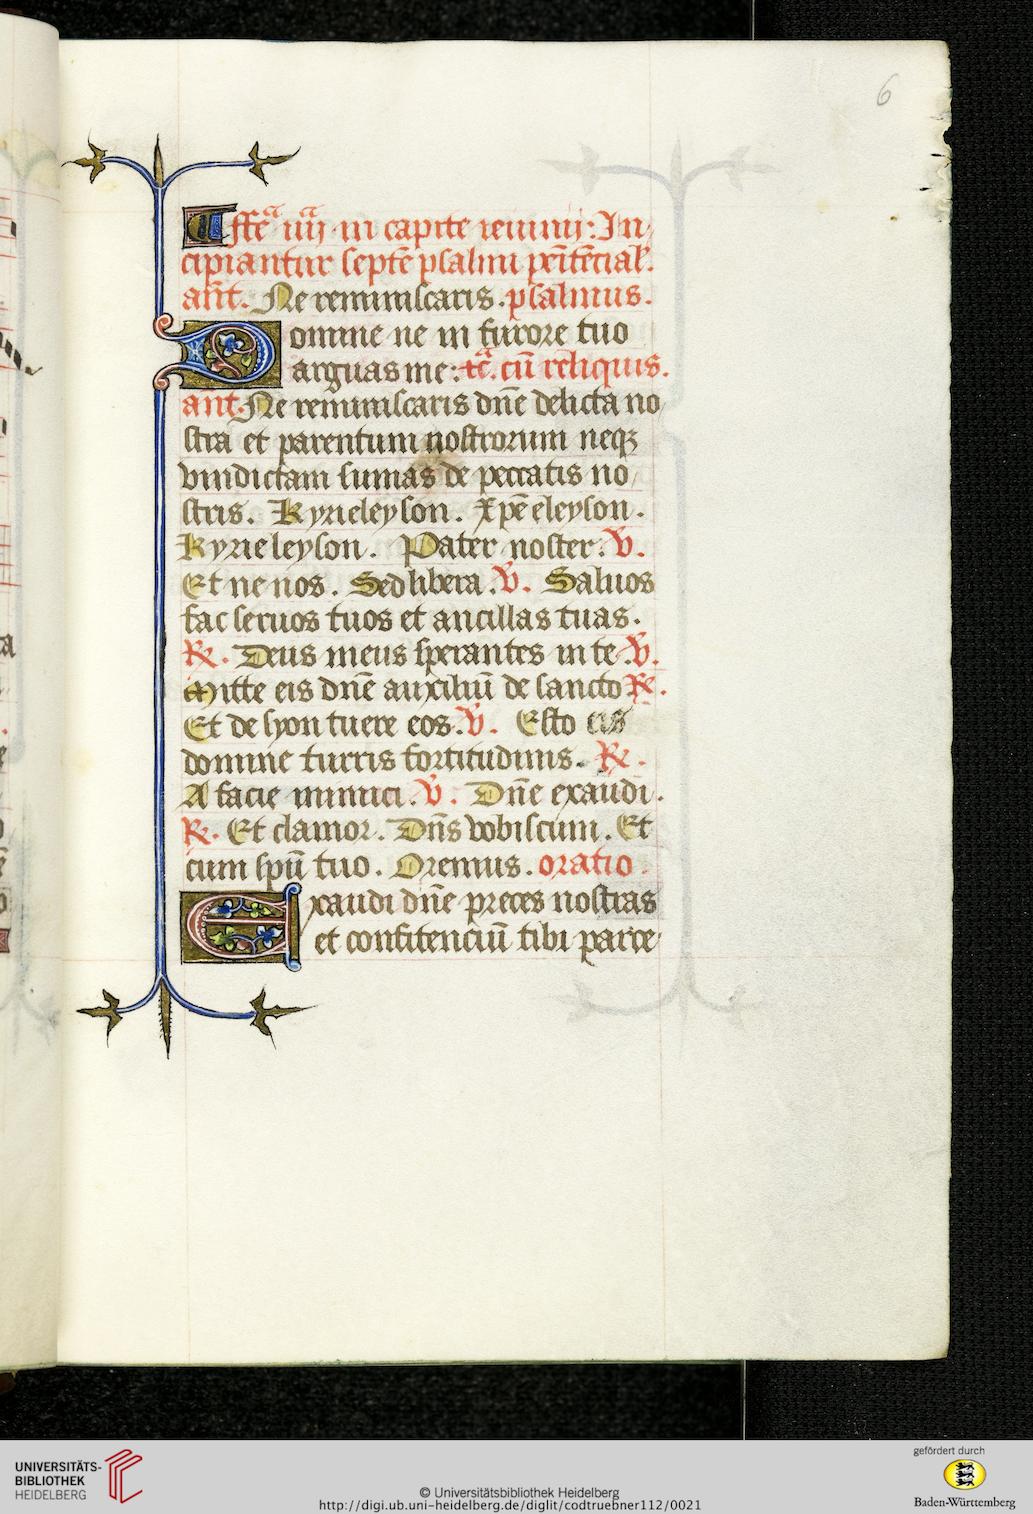 6
iiijᵃ in capite ieiunij: In
cipiantur septē psalmi pēitēcial.
añt. Ne reminiscaris. psalmus.
Domine ne in furore tuo
arguas me: tᷓc. cū reliquis.
añt. Ne reminiscaris dñe delicta no
stra et parentum nostrorum neqꝫ
vindictam sumas de peccatis no
stris. Kyrieleyson. Xp̄e eleyson.
Kyrieleyson. Pater noster. V̄.
Et ne nos. Sed libera. V̄. Saluos
fac seruos tuos et ancillas tuas.
R̄. Deus meus sperantes in te. V̄.
Mitte eis dñe auxiliū de sancto R̄.
Et de syon tuere eos. V̄. Esto eis
domine turris fortitudinis. R̄.
A facie inimici. V̄. Dñe exaudi.
R̄. Et clamor. Dñs vobiscum. Et
cum spū tuo. Oremus. oratio
Exaudi dñe preces nostras
et confitenciū tibi parce
UNIVERSITÄTS-
BIBLIOTHEK
HEIDELBERG
© Universitätsbibliothek Heidelberg
http://digi.ub.uni-heidelberg.de/diglit/codtruebner112/0021
gefördert durch
Baden-Württemberg